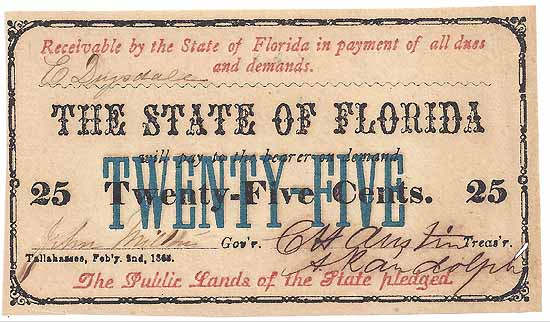 Receivable by the State of Florida in payment of all dues
and demands.
THE STATE OF FLORIDA
will pay to the bearer on demand
TWENTY FIVE
25 Twenty-Five Cents. 25
John Milton Gov'r. C H Austin Treas'r.
Tallahassee, Feb'y. 2nd, 1863.
A Randolph
The Public Lands of the State pledged.